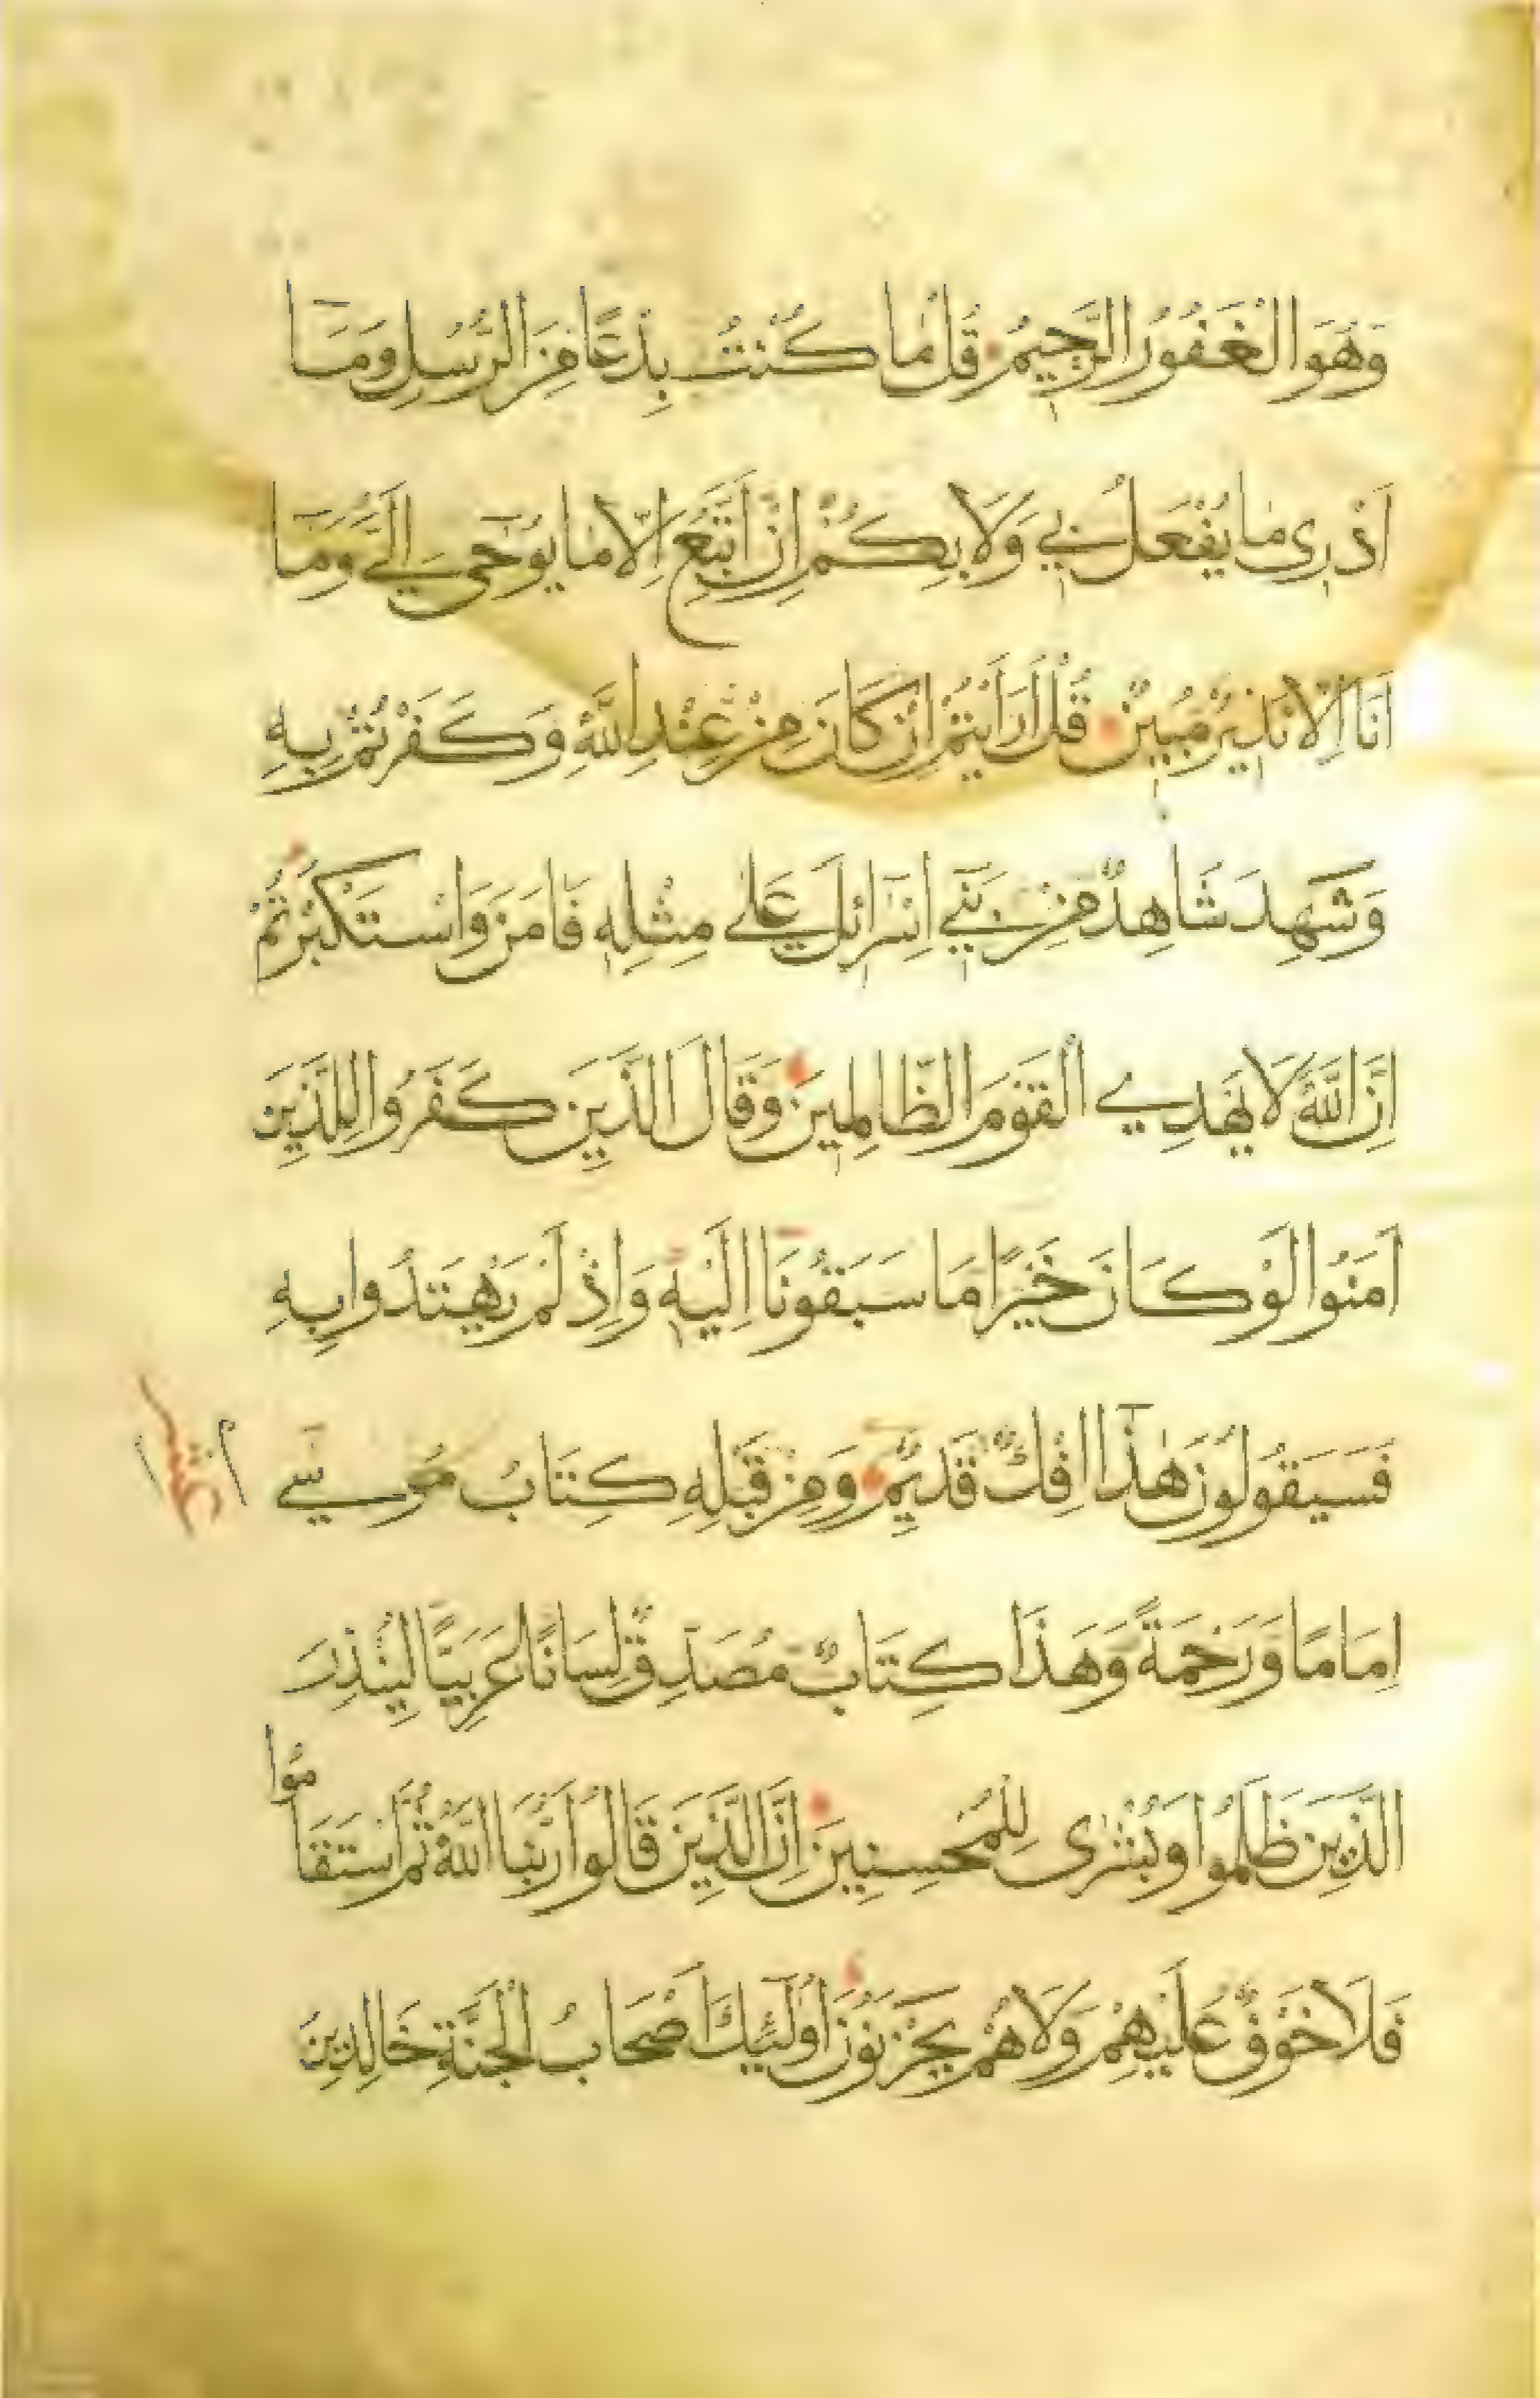 وَهُوَ الْغَفُورُ الرَّحِيمُ قُلْ مَا كُنْتُ بِدْعًا مِنَ الرُّسُلِ وَمَآ
اَدْرِى مَا يُفْعَلُ بِي وَلَا بِكُمْ اِنْ اَتَّبِعُ اِلَّا مَا يُوحٰٓى اِلَيَّ وَمَآ
اَنَا اِلَّا نَذِيرٌ مُبِينٌ قُلْ اَرَاَيْتُمْ اِنْ كَانَ مِنْ عِنْدِ اللّٰهِ وَكَفَرْتُمْ بِهِ
وَشَهِدَ شَاهِدٌ مِنْ بَنِي اِسْرَائلَ عَلٰى مِثْلِهِ فَاٰمَنَ وَاسْتَكْبَرْتُمْ
اِنَّ اللّٰهَ لَا يَهْدِي الْقَوْمَ الظَّالِمِينَ وَقَالَ الَّذِينَ كَفَرُوا لِلَّذِينَ
اٰمَنُوا لَوْ كَانَ خَيْرًا مَا سَبَقُونَا اِلَيْهِ وَاِذْ لَمْ يَهْتَدُوا بِهِ
فَسَيَقُولُونَ هٰذَآ اِفْكٌ قَدِيمٌ وَمِنْ قَبْلِهِ كِتَابُ مُوسٰى
اِمَامًا وَرَحْمَةً وَهَذَا كِتَابٌ مُصَدِّقٌ لِسَانًا عَرَبِيًّا لِيُنْذِرَ
الَّذِينَ ظَلَمُوا وَبُشْرٰى لِلْمُحْسِنِينَ اِنَّ الَّذِينَ قَالُوا رَبُّنَا اللّٰهُ ثُمَّ اسْتَقَامُوا
فَلَا خَوْفٌ عَلَيْهِمْ وَلَا هُمْ يَحْزَنُونَ اُولٰٓئِكَ اَصْحَابُ الْجَنَّةِ خَالِدِينَ